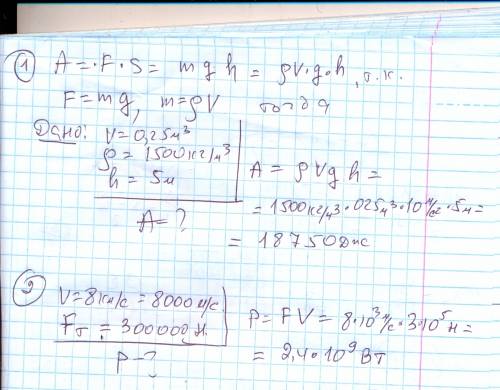 1) A = F·S = mgh = ρV·g·h, т.к.
F = mg, m = ρV тогда
Дано:
V = 0,25 м³
ρ = 1500 кг/м³
h = 5 м
A = ?
A = ρVgh =
= 1500 кг/м³ · 025 м³ · 10 м/с² · 5 м =
= 18750 Дж
2) V = 8 км/с = 8000 м/с
Fт = 300000 Н.
P - ?
P = FV = 8·10³ м/с · 3·10⁵ Н =
= 2,4·10⁹ Вт